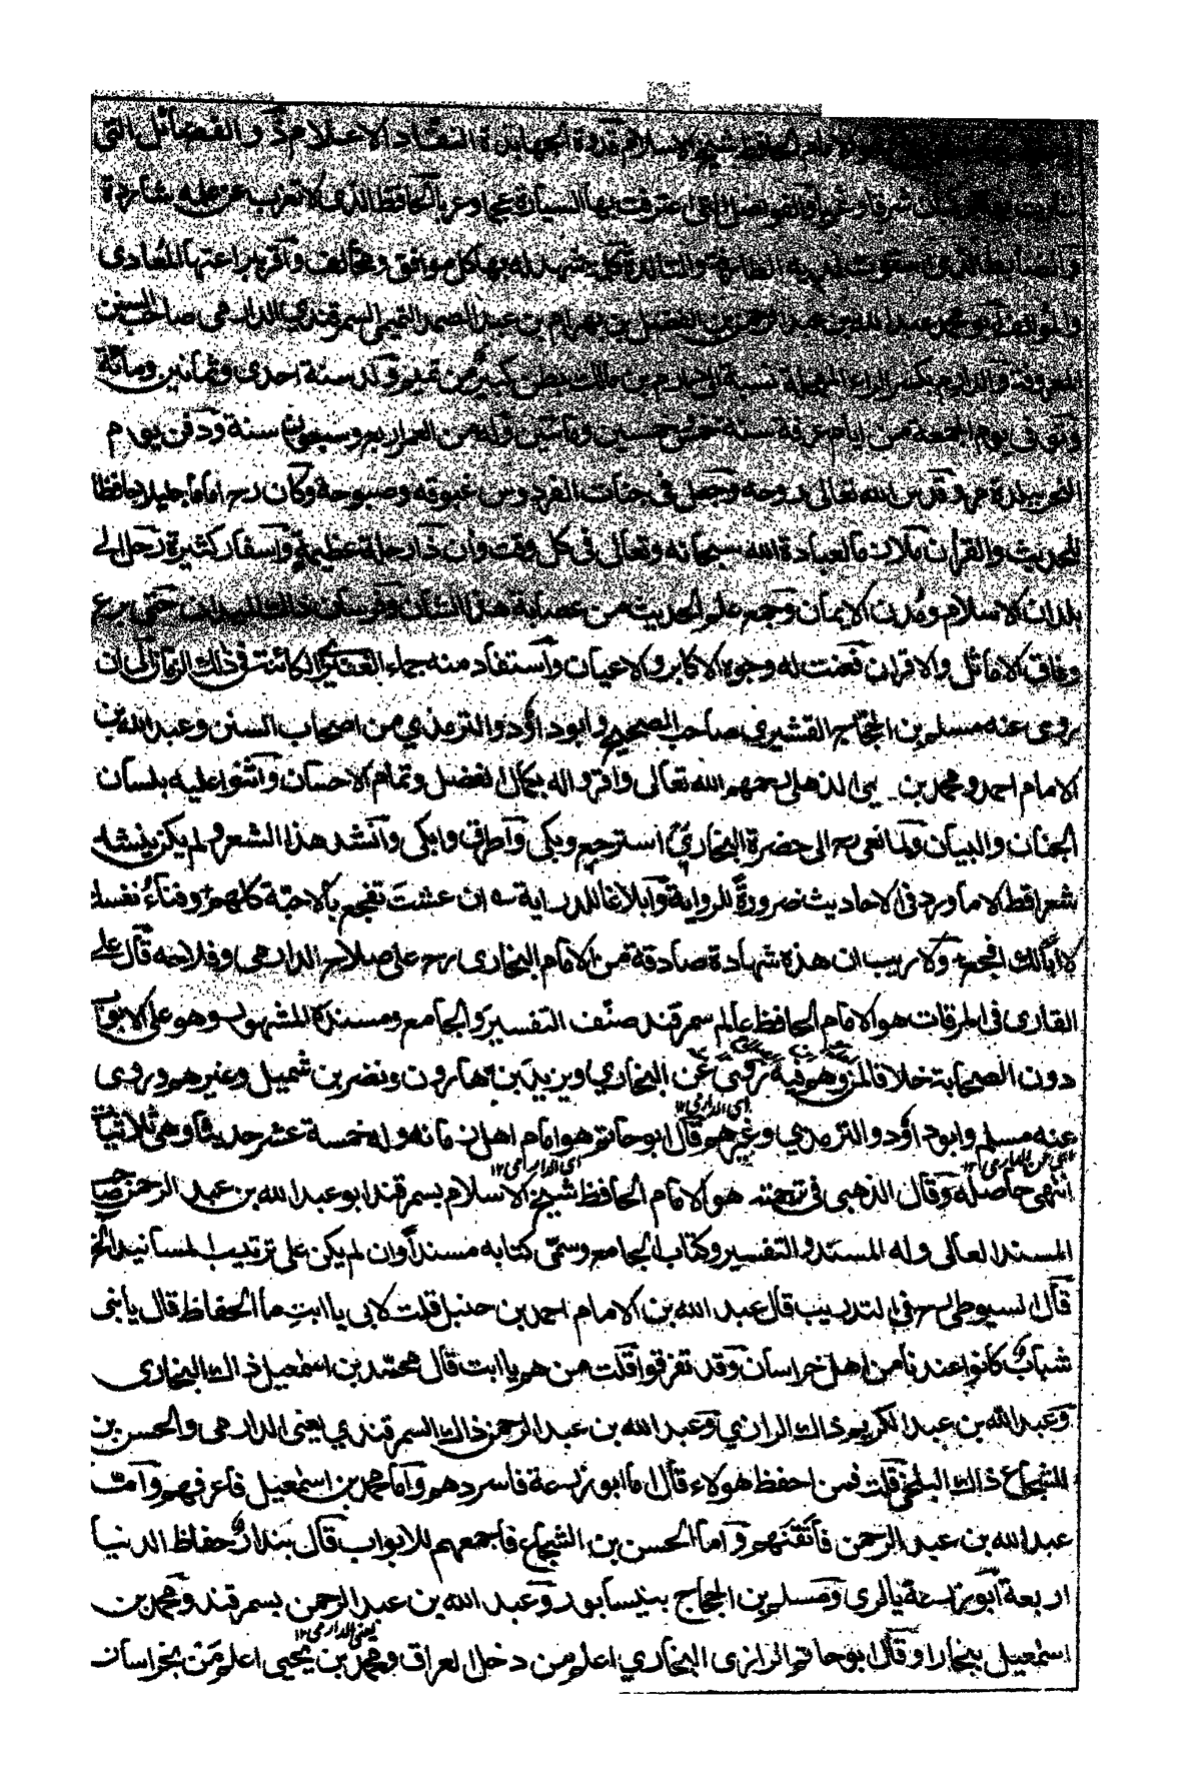 الامام الحافظ شيخ الاسلام قدوة الجهابذة النقاد الاعلام ذو الفضائل التى
شرقا وغربا والفواضل التى اعترفت بها السيارة عجما وعربا الحافظ الذى لا تعزب عن علمه شاردة
والضابط الذى الطارفة والتالدة كل يشهد له بها كل موافق ومخالف واقر ببراعتها المعادى
والمؤالف ابو محمد عبد الله بن عبد الرحمن بن الفضل بن بهرام بن عبد الصمد التميمى السمرقندي الدارمى صاحب السنن
المعروفة والدارم بكسر الراء المهملة نسبة الى دارم بن مالك بطن كبير من تميم ولد سنة احدى وثمانين ومائة
وتوفى يوم الجمعة من ايام عرفة سنة خمس وخمسين ومأتين وله من العمر اربع وسبعون سنة ودفن يوم
النحر ببلدة مرو قدس الله تعالى روحه وجعل فى جنات الفردوس غبوقه وصبوحه وكان رح اماما جليلا حافظا
للحديث والقرأن ملازما لعبادة الله سبحانه وتعالى فى كل وقت وأن ذا رحلة عظيمة واسفار كثيرة رحل الى
بلدان الاسلام ومدن الايمان وجمع علم الحديث من عصابة هذا الشأن وفرسان ذلك الميدان حتى برع
وفاق الاماثل والاقران فعنت له وجوه الاكابر والاعيان واستفاد منه جماء الغفير الكائنة فى ذلك الزمان الى ان
روى عنه مسلم بن الحجاج القشيرى صاحب الصحيح وابو داؤد والترمذي من اصحاب السنن وعبد الله بن
الامام احمد ومحمد بن يحيى الذهلى رحمهم الله تعالى واقروا له بكمال الفضل وتمام الاحسان واثنوا عليه بلسان
الجنان والبيان ولما نعى رح الى حضرة البخاري استرجع وبكى واطرق وابكى وانشد هذا الشعر ولم يكن ينشد
شعرا قط الا ما ورد فى الاحاديث ضرورة للرواية وابلاغا للدراية ان عشت تفجع بالاحبة كلهم وفناء نفسك
لا ابالك افجع ولا ريب ان هذه شهادة صادقة من الامام البخارى رح على صلاح الدارمى وفلاحه قال على
القارى فى المرقات هو الامام الحافظ عالم سمرقند صنف التفسير والجامع ومسنده المشهور وهو على الابواب
دون الصحابة خلافا لمن وهم فيه روى عن البخاري ويزيد بن هارون ونضر بن شميل وغيرهم وروى
عنه مسلم وابو داؤد والترمذي وغيرهم وقال ابو حاتم هو امام اهل زمانه وله خمسة عشر حديثا وهى ثلاثيات
اى الدارمى ١٢
انتهى حاصله وقال الذهبى فى ترجمته هو الامام الحافظ شيخ الاسلام بسمرقند ابو عبد الله بن عبد الرحمن صاحب
اى الدارمى ١٢
المسند العالى وله المسند والتفسير وكتاب الجامع وسمى كتابه مسندا وان لم يكن على ترتيب المسانيد الخ
قال السيوطى رح فى التدريب قال عبد الله بن الامام احمد بن حنبل قلت لابى يا ابت ما الحفاظ قال يا بنى
شباب كانوا عندنا من اهل خراسان وقد تفرقوا قلت من هم يا ابت قال محمد بن اسمعيل ذاك البخارى
وعبد الله بن عبد الكريم ذاك الرازي وعبد الله بن عبد الرحمن ذاك السمرقندي يعنى الدارمى والحسن بن
الشجاع ذاك البلخى قلت فمن احفظ هولاء قال اما ابو زرعة فاسردهم واما محمد بن اسمعيل فاعرفهم واما
عبد الله بن عبد الرحمن فاتقنهم واما الحسن بن الشجاع فاجمعهم للابواب قال بندار حفاظ الدنيا
اربعة ابو زرعة بالرى ومسلم بن الحجاج بنيسابور وعبد الله بن عبد الرحمن بسمرقند ومحمد بن
يعنى الدارمى ١٢
اسمعيل ببخارا وقال ابو حاتم الرازى البخاري اعلم من دخل العراق ومحمد بن يحيى اعلم من بخراسان